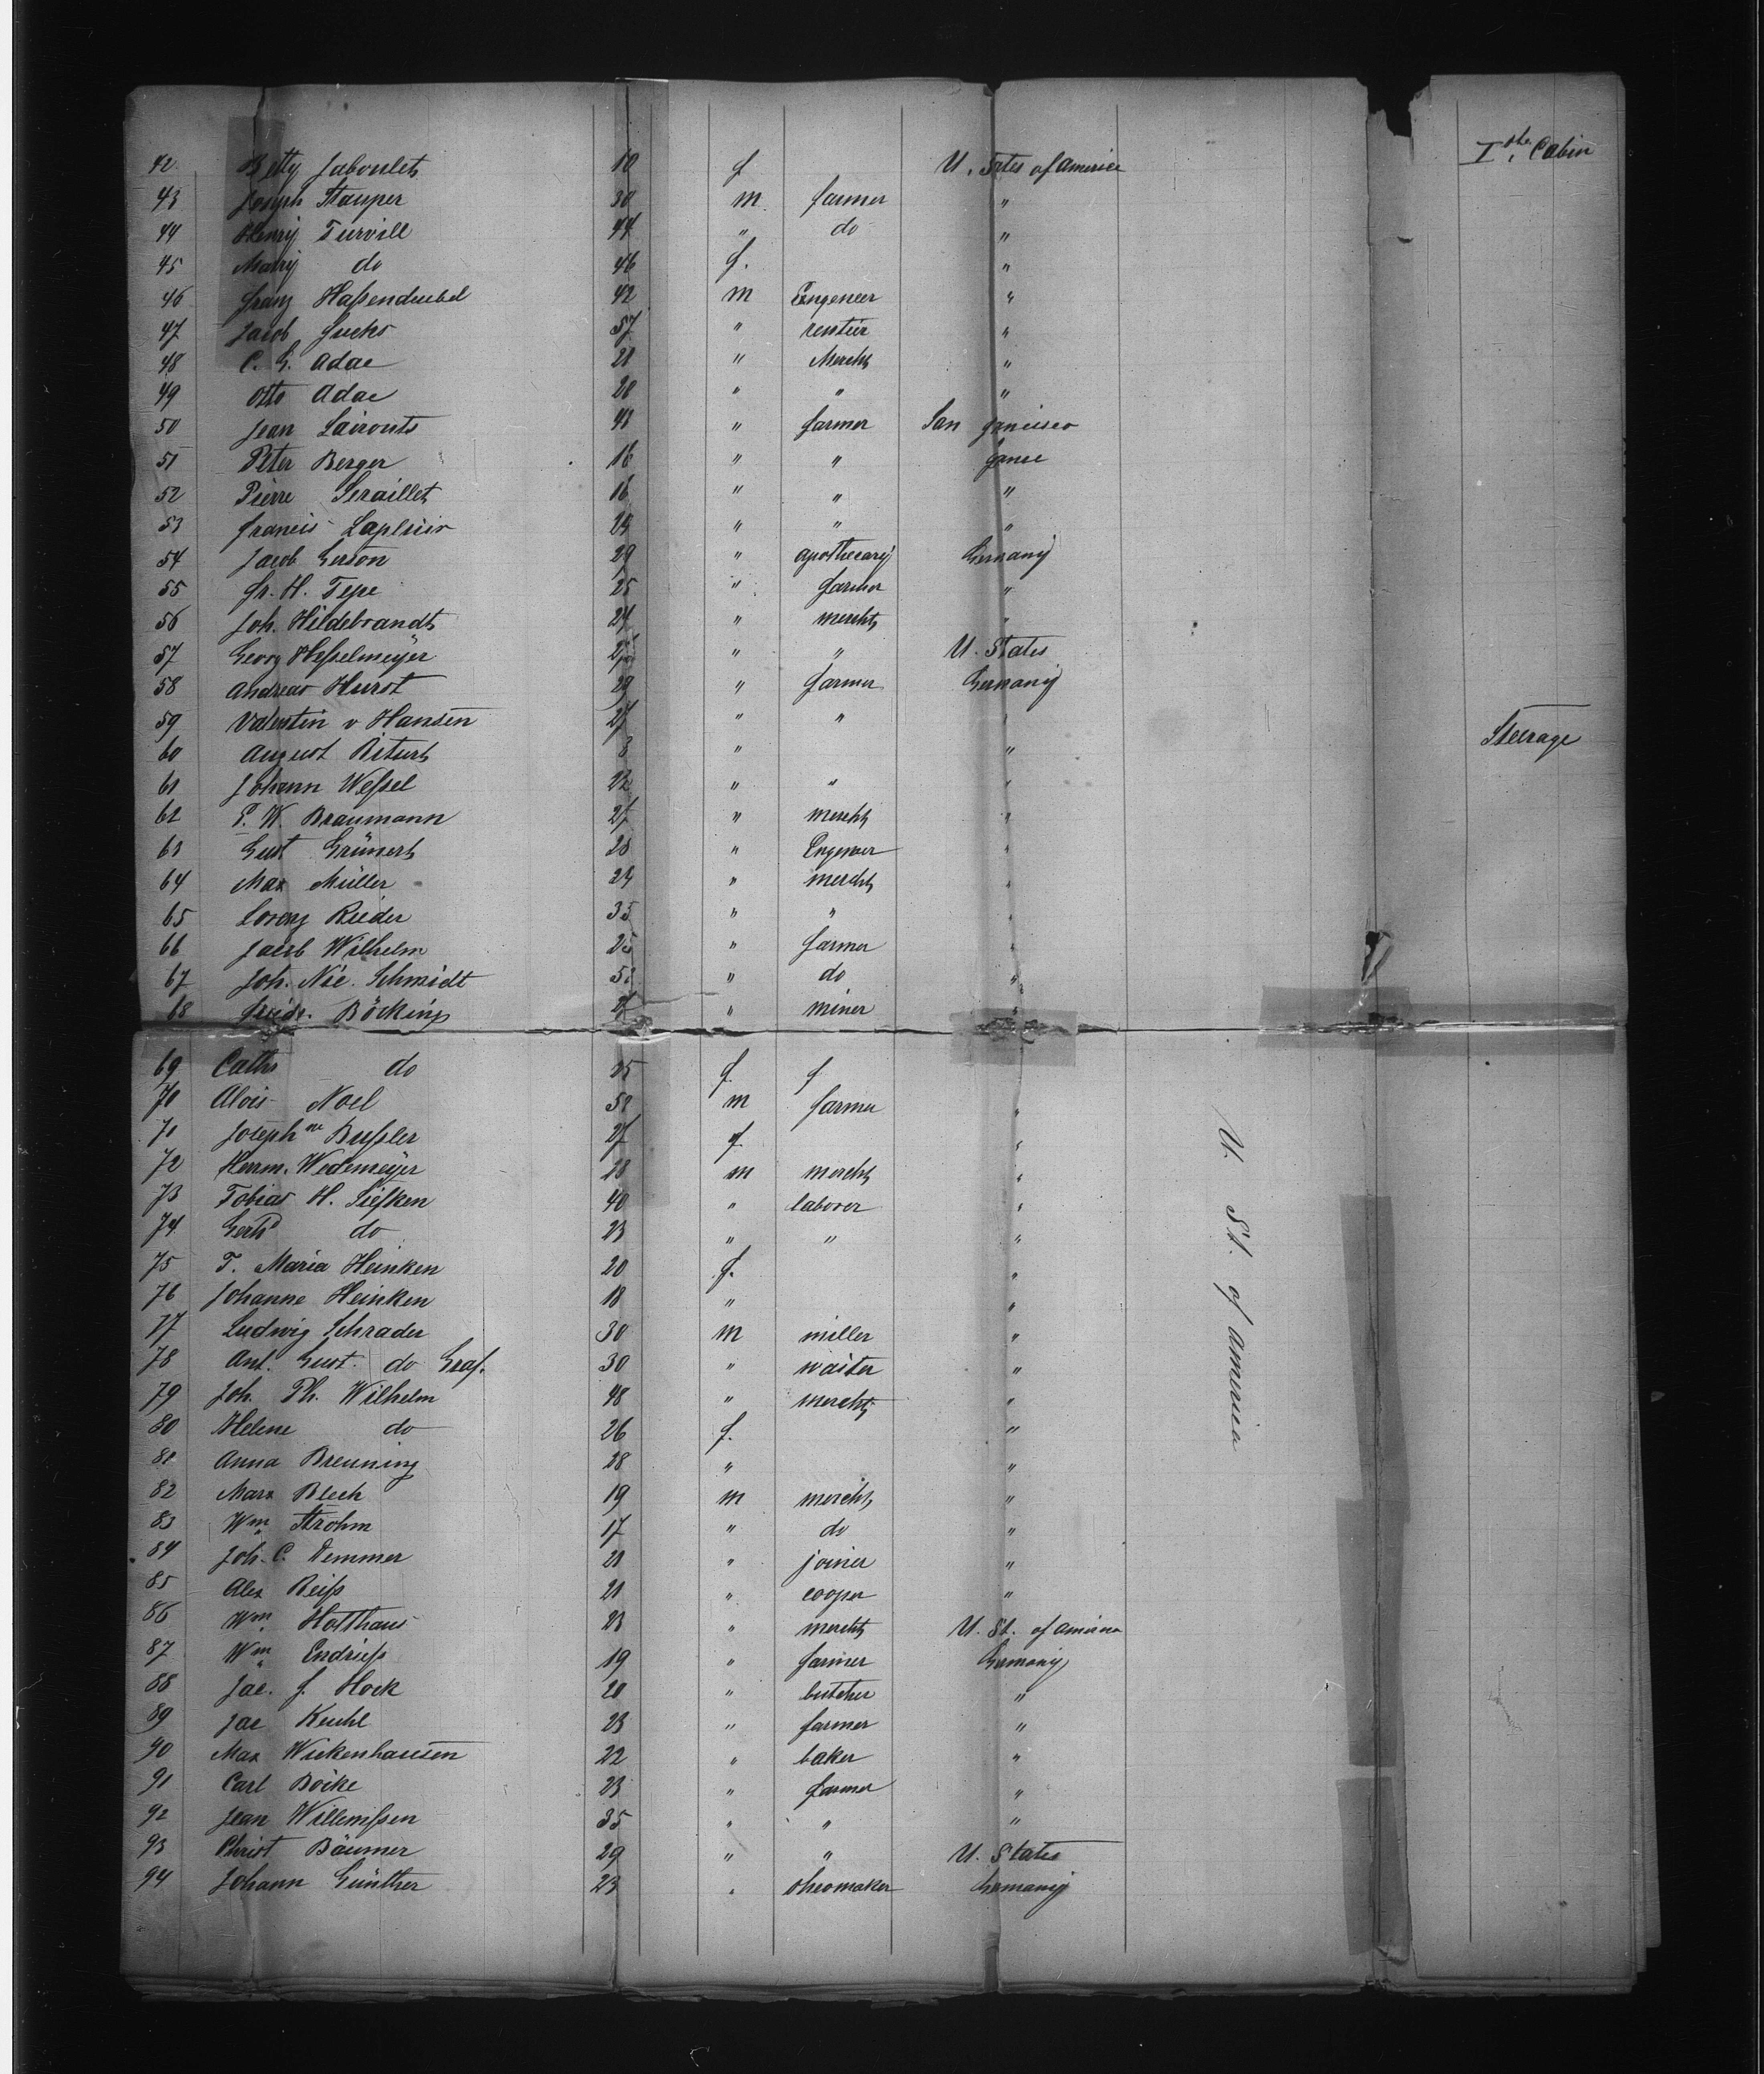 Iste Cabin
42 Betty Jaboulet 10 f U. States of America
43 Joseph Stauper 30 m farmer "
44 Henry Turvill 44 " do "
45 Mary do 46 f. "
46 Franz Haßendeubel 42 m Engeneer "
47 Jacob Fuchs 57 " rentier "
48 C. G. Adae 21 " Mercht "
49 Otto Adae 20 " " "
50 Jean " farmer San Francisco
51 Peter Berger 16 " " France
52 Pierre 16 " " "
53 Francis " " "
54 Jacob Gerson 29 " apothecary Germany
55 Fr. H. Tepe 25 " farmer "
56 Joh. Hildebrandt 24 " mercht "
57 Georg Heßelmeyer " " U. States
58 Andreas Hurst 29 " farmer Germany
59 Valentin v Hansen 27 " " "
Steerage
60 August 8 " "
61 Johann Weßel 22 " " "
62 E. W. Braumann 27 " mercht "
63 Gust Grünert 28 " Engeneer "
64 Max Müller 24 " mercht "
65 Lorenz Rieder 35 " " "
66 Jacob Wilhelm 25 " farmer "
67 Joh. Nic. Schmidt " do "
68 Friedr. Böcking " miner "
69 Cath. do 25 f f
70 Alois Noel m farmer "
71 Josephne Bußler 27 f "
72 Herrm. Wedemeyer 28 m mercht "
73 Tobias H. Siefken 40 " laborer "
74 Gerhd do 23 " " "
75 T. Maria Heinken 20 f. "
76 Johanne Heinken 18 " "
77 Ludwig Schrader 30 m miller "
78 Ant. Gust. do Graf. 30 " waiter "
79 Joh. Ph. Wilhelm 48 " mercht "
80 Helene do 26 f. "
81 Anna Breuning 28 " "
82 Marx Blech 19 m mercht "
83 Wm Strohm 17 " do "
84 Joh. C. Demmer 21 " joiner "
85 Alex Reiß 21 " cooper "
86 Wm. Holthaus 23 " mercht U. St. of America
87 Wm Endrieß 19 " farmer Germany
88 Jac. F. Hock 20 " butcher "
89 Jac Kuchl 23 " farmer "
90 Max Wickenhausen 22 " baker "
91 Carl Böcke 23 " farmer "
92 Jean Willemßen 35 " " "
93 Christ Bäumer 29 " " U. States
94 Johann Günther 23 " shoemaker Germany
U. St. of America